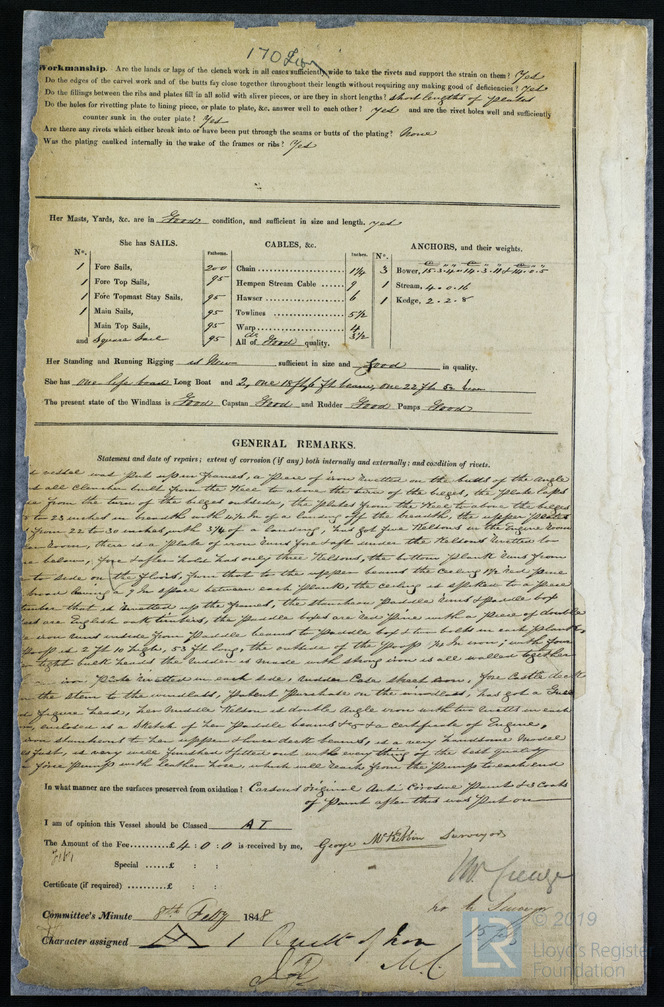 170 Iron
Workmanship. Are the lands or laps of the clench work in all cases sufficiently wide to take the rivets and support the strain on them? Yes
Do the edges of the carvel work and of the butts fay close together throughout their length without requiring any making good of deficiencies? Yes
Do the fillings between the ribs and plates fill in all solid with sliver pieces, or are they in short lengths? Short lengths of plates
Do the holes for rivetting plate to lining piece, or plate to plate, &c. answer well to each other? Yes and are the rivet holes well and sufficiently
counter sunk in the outer plate? Yes
Are there any rivets which either break into or have been put through the seams or butts of the plating? None
Was the plating caulked internally in the wake of the frames or ribs? Yes
Her Masts, Yards, &c. are in Good condition, and sufficient in size and length. Yes
She has SAILS. CABLES, &c. ANCHORS, and their weights.
Nº. Fathoms. Inches. Nº.
1 Fore Sails, 200 Chain 1 1/4 3 Bower, 15.3.4 14.3.11 14.0.5
1 Fore Top Sails, 95 Hempen Stream Cable 9 1 Stream, 4.0.16
1 Fore Topmast Stay Sails, 95 Hawser 6 1 Kedge, 2.2.8
1 Main Sails, 95 Towlines 5 1/2
Main Top Sails, 95 Warp 4
and Square Sail 95 do 3 1/2
All of Good quality.
Her Standing and Running Rigging is New sufficient in size and Good in quality.
She has one life boat Long Boat and 2, one 18 ft by 6 ft beam, one 22 ft
The present state of the Windlass is Good Capstan Good and Rudder Good Pumps Good
GENERAL REMARKS.
Statement and date of repairs; extent of corrosion (if any) both internally and externally; and condition of rivets.
vessel was put up in frames, a piece of iron rivetted on the butts of the Angle
all clencher built from the Keel to above the turn of the belges, the plate laps
from the turn of the belges outside, the plates from the Keel to above the belges
to 23 inches in breadth with of a landing off the breadth, the upper plates
from 22 to 30 inches with 3 1/4 of a landing, has got five Kelsons in the Engine room
room, there is a plate of iron runs fore & aft under the Kelsons rivetted to
below, fore & after hold has only three Kelsons, the bottom plank runs from
to side on the floors, from that to the upper beams the ceiling red pine
having a 9 In space between each plank, the ceiling is spiked to a piece
timber that is rivetted up the frames, the stanchions Paddle & Paddle box
are English oak timbers, the paddle boxes are red pine with a piece of double
iron runs inside from Paddle beams to Paddle box & two bolts in each plank
Poop is 2 ft 10 high, 53 ft long, the outside of the Poop In iron, with four
tight bulk heads the rudder is made with strong iron is all welded together
iron, Plate rivetted on each side, rudder Case sheet iron, Fore Castle deck
the stem to the windlass, Patent Purchase on the windlass, has got a full
figure head, her middle Kelson is double Angle iron with two rivets on each
enclosed is a sketch of her Paddle beams &c & a certificate of Engine,
iron stanchions to her upper & lower deck beams, is a very handsome model
fast, is very well finished & fitted out with every thing of the best quality
fire Pump with leather hose, which will reach from the Pump to each end
In what manner are the surfaces preserved from oxidation? Carsons Original Anti Cirodue Paint & 3 Coats
of Paint after this was Put on
I am of opinion this Vessel should be Classed A I
The Amount of the Fee £4 : 0 : 0 is received by me, George McKibbin Surveyor
Special £ : :
Certificate (if required) £ : :
Committee's Minute 8th Feby 1848
Character assigned A 1 Built of Iron
© 2019
LR
Lloyd's Register
Foundation